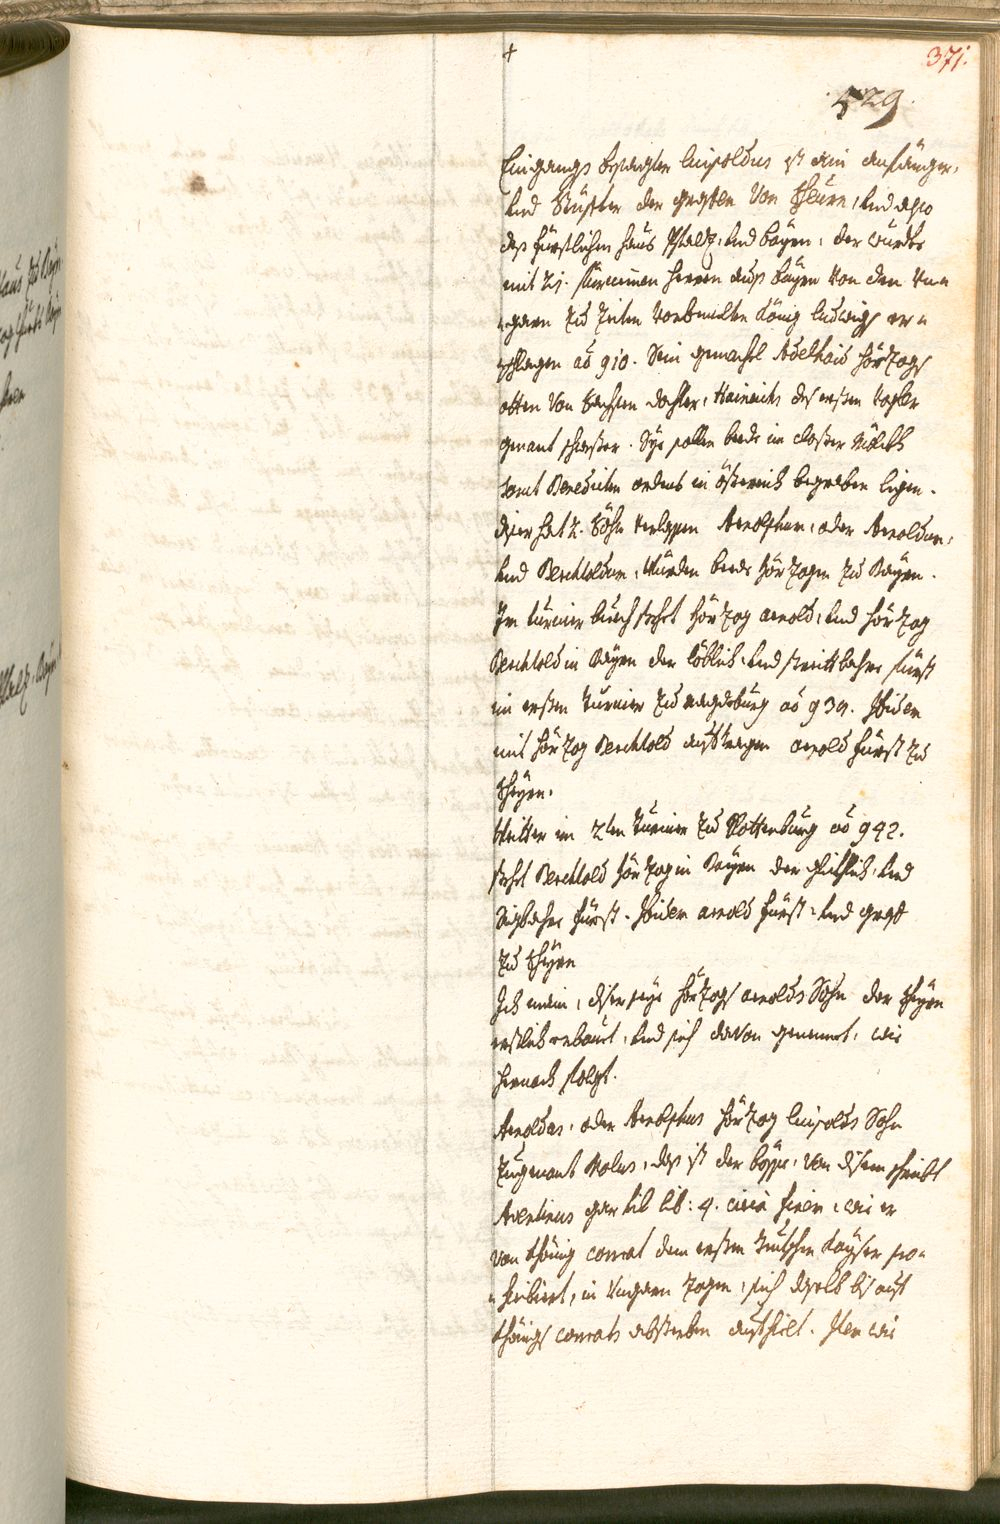 +
371.
529.
Eingangs besagter Luipoldus ist ein anfänger,
und Stüffter der graffen von Scheurn, und also
deß fürstlichen Haus Pfaltz, und Bayrn, der wurde
mit 21. fürnemen Herren auß Bayrn von den Vn=
=garn zu Zeiten vorbemelten König Ludwigs er=
=schlagen aõ 910. Sein gemachel Adelhaid Hörzogs
otten von Sachsen dochter, Hainrichs des ersten Vogler
genant schwester. Sye sollen beede im Closter Mölckh
Sanct Benedicten ordens in össterreich begraben ligen.
diser hat 2. Söhn verlassen Arnolphum, oder Arnoldum,
und Berchtoldum, wurden beede Hörzogen zu Bayrn.
Im turnier buech steht Hörzog arnold, und Hörzog
Berchtold in Bayrn der löblich und streittbahre fürst
im ersten Turnier zu magdeburg aõ 934. Item
mit Hörzog Berchtold auftragen arnold Fürst zu
Scheyrn.
Weitter im 2ten Turnier zu Rottenburg aõ 942.
steht Berchtold Hörzog in Bayrn der glückhlich, und
Sigbahre fürst. Item arnold Fürst, und graff
zu Scheyrn
Ich main, diser seye Hörzogs arnolds Sohn der Scheyrn
erstlich erbaut, und sich davon genennet, wie
hernach folgt.
Arnoldus, oder Arnolphus Hörzog Luipolds Sohn
Zugenant Malus, das ist der böse, von disem schreibt
Aventinus gar vil lib: 4. circa finem, wie er
von Khönig conrat dem ersten Teutschen Kayser pro=
=scribiert, in Vngarn zogen, sich daselb bis auf
Khönigs conrats absterben aufhielt. Item wie